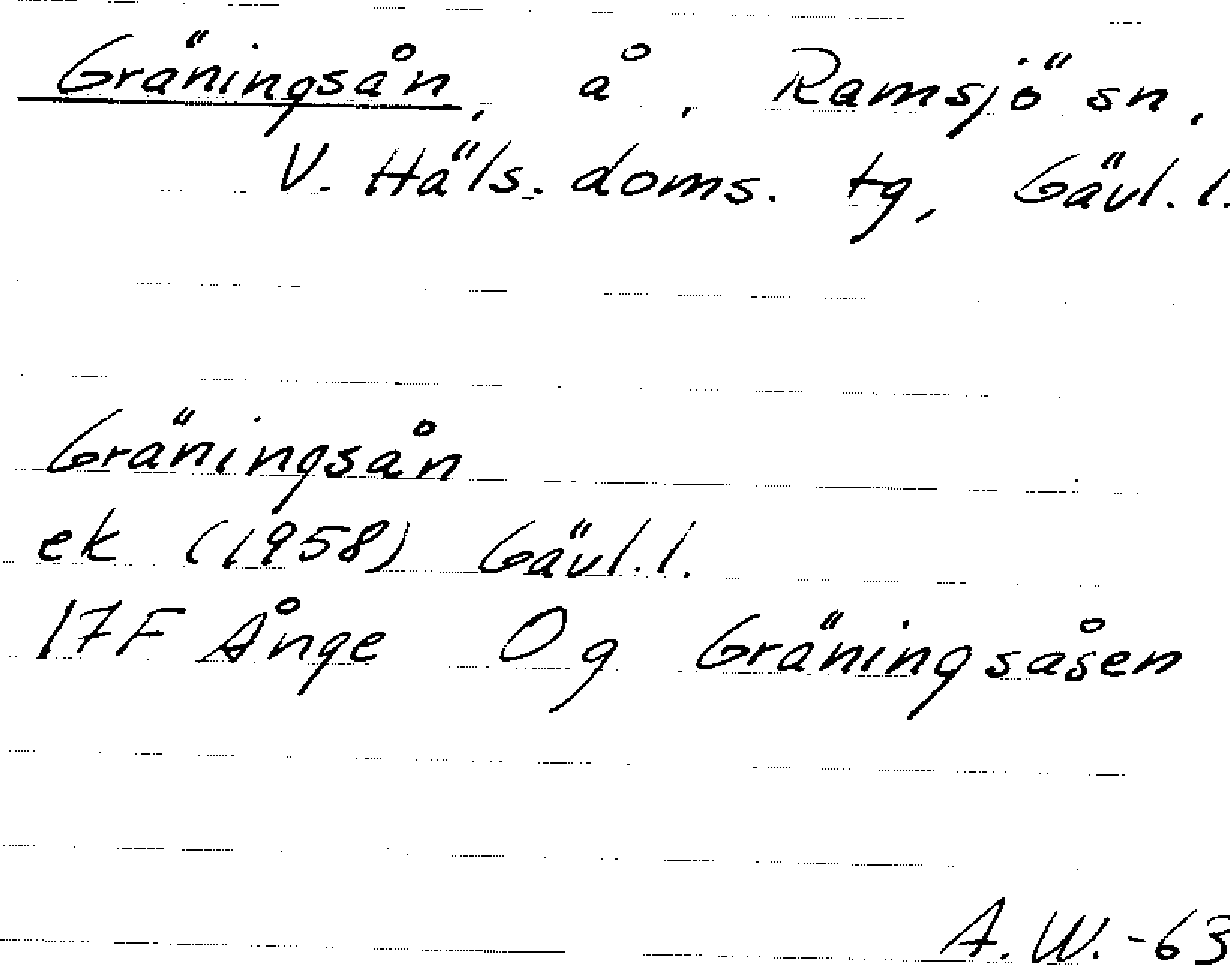 Gräningsån, å, Ramsjö sn,
V. Häls. doms. tg, Gävl. l.
Gräningsån
ek (1958) Gävl. l.
17F Ånge 0g Gräningsåsen
A.W.-63